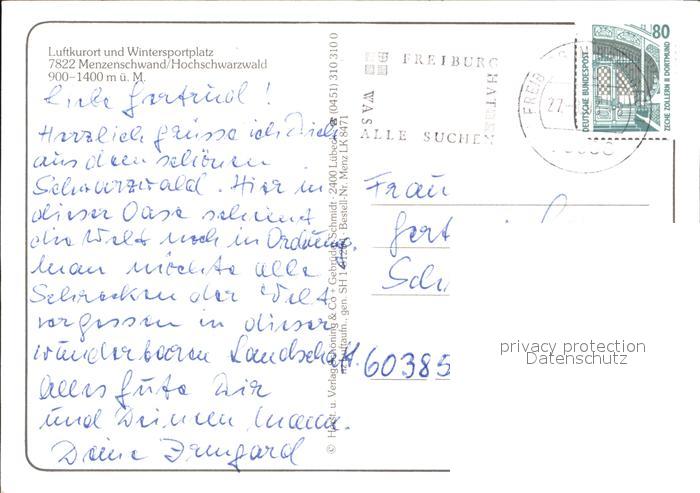 Luftkurort und Wintersportplatz
7822 Menzenschwand/Hochschwarzwald
900–1400 m ü. M.
Liebe Gertrud!
Herzlich grüsse ich Dich
aus dem schönen
Schwarzwald. Hier in
dieser Oase scheint
die Welt noch in Ordnung.
Man möchte alle
Schrecken der Welt
vergessen in dieser
wunderbaren Landschaft.
Alles Gute Dir
und Deinen Mann.
Deine Irmgard
© Hrst. u. Verlag Schöning & Co + Gebrüder Schmidt · 2400 Lübeck (0451) 310 310 0
Bestell-Nr. Menz LK 8471
FREIBURG
HAT
WAS
ALLE SUCHEN
FREIB
27.
80
DEUTSCHE BUNDESPOST
ZECHE ZOLLERN II DORTMUND
Frau
Gert
Sch
60385
privacy protection
Datenschutz